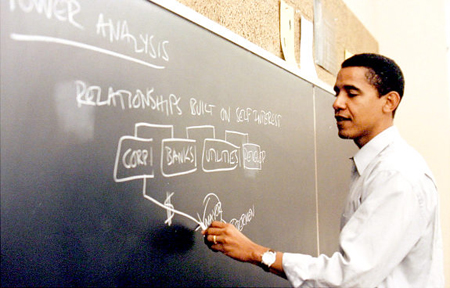 POWER ANALYSIS
RELATIONSHIPS BUILT ON SELF INTEREST
CORP BANKS UTILITIES
$
MAYOR